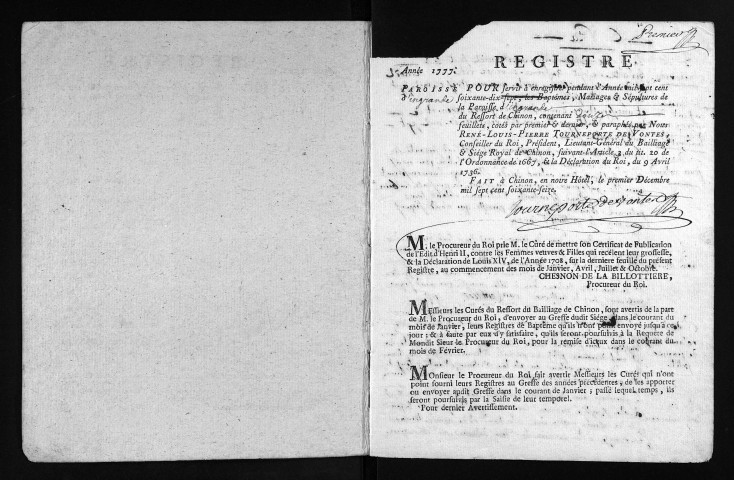 Premier
REGISTRE
Année 1777.
PAROISSE
d'ingrande
POUR servir à enregistrer pendant l'Année mil sept cent
soixante-dix-sept, les Baptêmes, Mariages & Sépultures de
la Paroisse d'ingrande
du Ressort de Chinon, contenant douze
feuillets, cotés par premier & dernier, & paraphés par Nous
RENÉ-LOUIS-PIERRE TOURNEPORTE DES VONTES,
Conseiller du Roi, Président, Lieutenant-Général du Bailliage
& Siége Royal de Chinon, suivant l'Article 2, du tit. 20 de
l'Ordonnance de 1667, & la Déclaration du Roi, du 9 Avril
1736.
FAIT à Chinon, en notre Hôtel, le premier Décembre
mil sept cent soixante-seize.
Tourneporte desvontes
M. le Procureur du Roi prie M. le Curé de mettre son Certificat de Publication
de l'Edit d'Henri II, contre les Femmes veuves & Filles qui recèlent leur grossesse,
& la Déclaration de Louis XIV, de l'Année 1708, sur la derniere feuille du présent
Registre, au commencement des mois de Janvier, Avril, Juillet & Octobre.
CHESNON DE LA BILLOTTIERE,
Procureur du Roi.
Messieurs les Curés du Ressort du Bailliage de Chinon, sont avertis de la part
de M. le Procureur du Roi, d'envoyer au Greffe dudit Siége, dans le courant du
mois de Janvier, leurs Registres de Baptême qu'ils n'ont point envoyé jusqu'à ce
jour; & à faute par eux d'y satisfaire, qu'ils seront poursuivis à la Requête de
Mondit Sieur le Procureur du Roi, pour la remise d'iceux dans le courant du
mois de Février.
Monsieur le Procureur du Roi fait avertir Messieurs les Curés qui n'ont
point fourni leurs Registres au Greffe des années précédentes, de les apporter
ou envoyer audit Greffe dans le courant de Janvier; passé lequel temps, ils
seront poursuivis par la Saisie de leur temporel.
Pour dernier Avertissement.